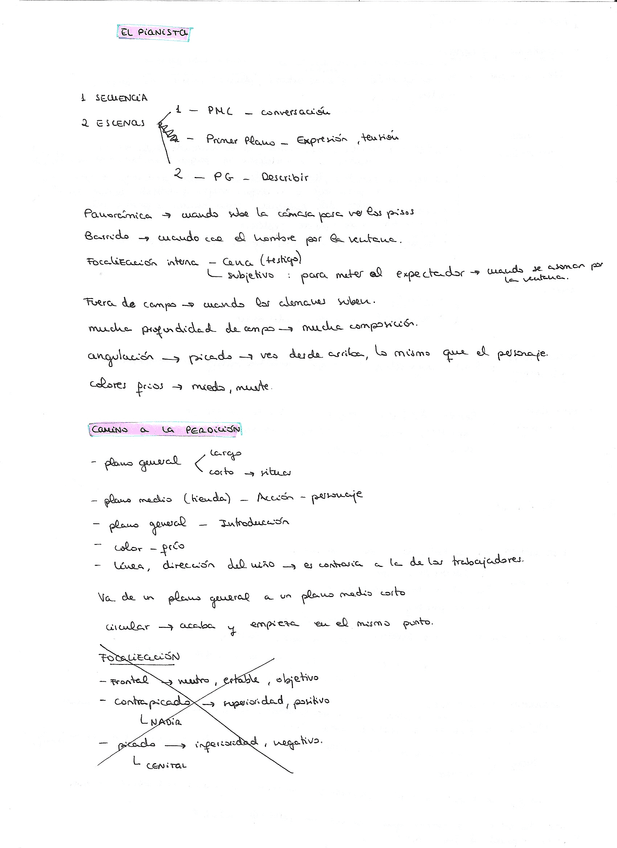 EL PIANISTA
1 SECUENCIA
1 — PMC — conversación
2 ESCENAS
— Primer Plano — Expresión, tensión
2 — PG — Describir
Panorámica → cuando sube la cámara para ver los pisos
Barrido → cuando cae el hombre por la ventana.
Focalización interna — Cena (testigo)
subjetivo : para meter al expectador → cuando se asoman por
la ventana.
Fuera de campo → cuando los alemanes suben.
mucha profundidad de campo → mucha composición.
angulación → picado → veo desde arriba, lo mismo que el personaje.
colores fríos → miedo, muerte.
CAMINO A LA PERDICIÓN
largo
- plano general
corto → situar
- plano medio (tienda) — Acción - personaje
- plano general — Introducción
- color — frío
- línea, dirección del niño → es contraria a la de los trabajadores.
Va de un plano general a un plano medio corto
circular → acaba y empieza en el mismo punto.
FOCALIZACIÓN
- Frontal → neutro, estable, objetivo
- contrapicado → superioridad, positivo
NADIR
- picado → inferioridad, negativo.
CENITAL